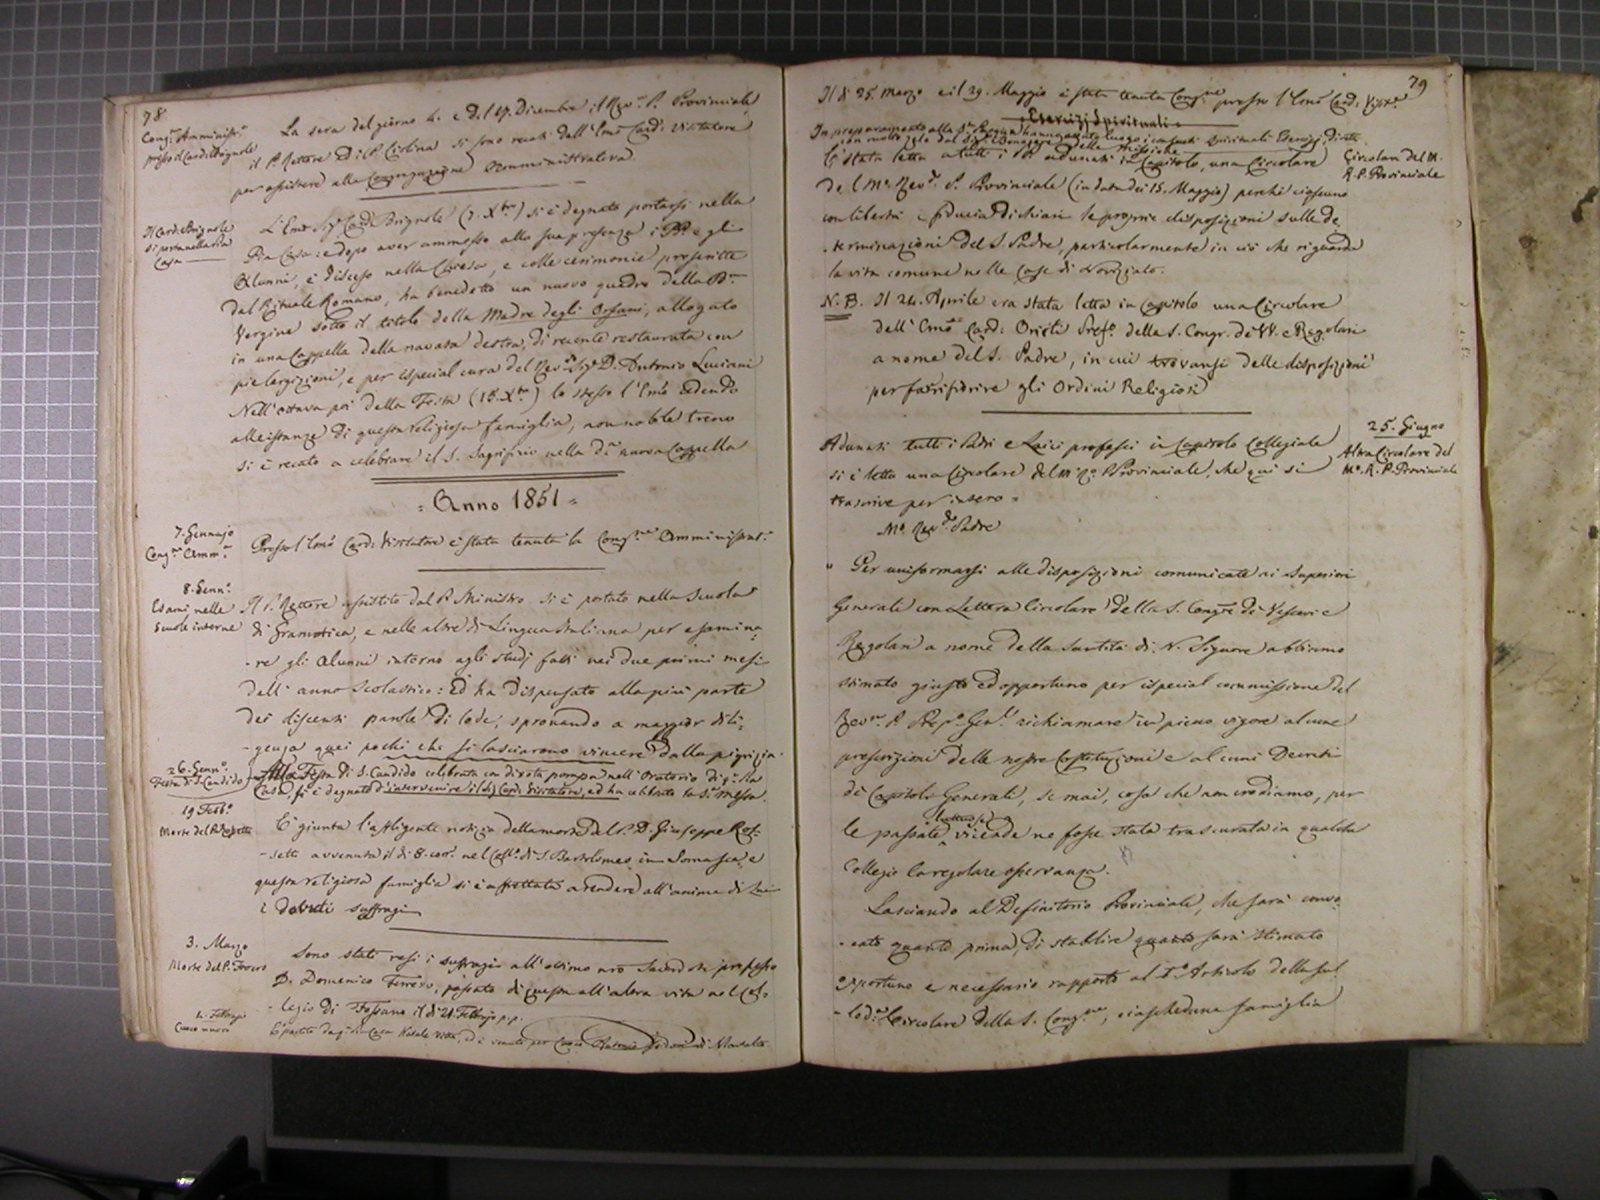 78
Cong.e Amministr.
presso il Card. Brignole
La sera del giorno 4. e d. l 17. Dicembre, il Rev.mo P. Provinciale
il P. Rettore ed il P. Cirolina si sono recati dall'Emo Card. Visitatore
per assistere alla Congregazione Amministrativa.
Il Card. Brignole
si porta nella Pia
Casa
L'Emo Sig.r Card. Brignole (7. Xbre) si è degnato portarsi nella
Pia Casa: e dopo aver ammesso alla sua presenza i PP. e gli
Alunni, è disceso nella Chiesa, e colle cerimonie prescritte
dal Rituale Romano, ha benedetto un nuovo quadro della B.ma
Vergine sotto il titolo della Madre degli Orfani, allogato
in una Cappella della navata destra, di recente restaurata con
pie largizioni, e per ispecial cura del Rev. Sig. D. Antonio Luciani
Nell'ottava poi della Festa (15. Xbre) lo stesso l'Emo cedendo
alle istanze di questa religiosa famiglia, con nobile treno
si è recato a celebrare il S. Sagrifizio nella d.a nuova Cappella
= Anno 1851 =
7. Gennajo
Cong.ne Amm.a
Presso l'Emo Card. Visitatore è stata tenuta la Cong.ne Amministrat.a
8. Genn.o
Esami nelle
Scuole interne
Il P. Rettore assistito dal P. Ministro si è portato nella scuola
di Gramatica, e nelle altre di Lingua Italiana per esamina-
-re gli Alunni intorno agli studj fatti nei due primi mesi
dell'anno scolastico: Ed ha dispensato alla più parte
dei discenti parole di lode, spronando a maggior dili-
-genza quei pochi che si lasciarono vincere dalla pigrizia.
26. Genn.o
Festa di S. Candido
Alla Festa di S. Candido celebrata con divota pompa nell'Oratorio di q.sta
Casa, si è degnato d'intervenire il Card. Visitatore, ed ha celebrato la S. Messa.
19 Febb.o
Morte del P. Rossetti
E' giunta l'affligente notizia della morte del P. D. Giuseppe Ros-
-setti avvenuta il dì 8. corr. nel Coll.o di S. Bartolomeo in Somasca, e
questa religiosa famiglia si è affrettata a rendere all'anima di Lui
i dovuti suffragi
3. Marzo
Morte del P. Ferrero
Sono stati resi i suffragi all'ottimo nro Sacerdote professo
D. Domenico Ferrero, passato di questa all'altra vita nel Col-
-legio di Fossano il dì 21 Febbrajo p.p.
1. Febbrajo
Cuoco nuovo
E' partito da q. Pia Casa Natale ed è venuto per Cuoco Antonio di Montalto.
79
Il dì 25. Marzo e il 29. Maggio è stata tenuta Cong.ne presso l'Emo Card. Visit.e
Esercizj Spirituali
In preparamento alla hanno avuto luogo i consueti Spirituali Esercizj, diretti
con molto zelo dal Sig. della Missione
Circolare del M.
R. P. Provinciale
E' stata letta a tutti i PP. adunati in Capitolo, una Circolare
del M. Rev.do P. Provinciale (in data dei 15. Maggio) perchè ciascuno
con libertà e fiducia dichiari le proprie disposizioni sulle de-
-terminazioni del S. Padre, particolarmente in ciò che riguarda
la vita comune nelle Case di Noviziato.
N.B. Il 24. Aprile era stata letta in Capitolo una Circolare
dell'Emo Card. Orioli Pref.o della S. Congr. de' VV. e Regolari
a nome del S. Padre, in cui trovansi delle disposizioni
per far rifiorire gli Ordini Religiosi
25. Giugno
Altra Circolare del
M. R. P. Provinciale
Adunati tutti i Padri e Laici professi in Capitolo Collegiale
si è letta una Circolare del M. R. P. Provinciale, che qui si
trascrive per intero =
M. Rev.do Padre
" Per uniformarsi alle disposizioni comunicate ai Superiori
Generali con Lettera Circolare della S. Cong.ne di Vescovi e
Regolari a nome della Santità di N. Signore abbiamo
stimato giusto ed opportuno per ispecial commissione del
Rev.mo P. Prep.o Gen.le richiamare in pieno vigore alcune
prescrizioni delle nostre Costituzioni e alcuni Decreti
de' Capitoli Generali, se mai, cosa che non crediamo, per
le passate luttuose vicende ne fosse stata trascurata in qualche
Collegio la regolare osservanza.
Lasciando al Definitorio Provinciale, che sarà convo-
-cato quanto prima, di stabilire quanto sarà stimato
opportuno e necessario rapporto al 1.o Articolo della sul-
-lod.a Circolare della S. Cong.ne, ciascheduna famiglia